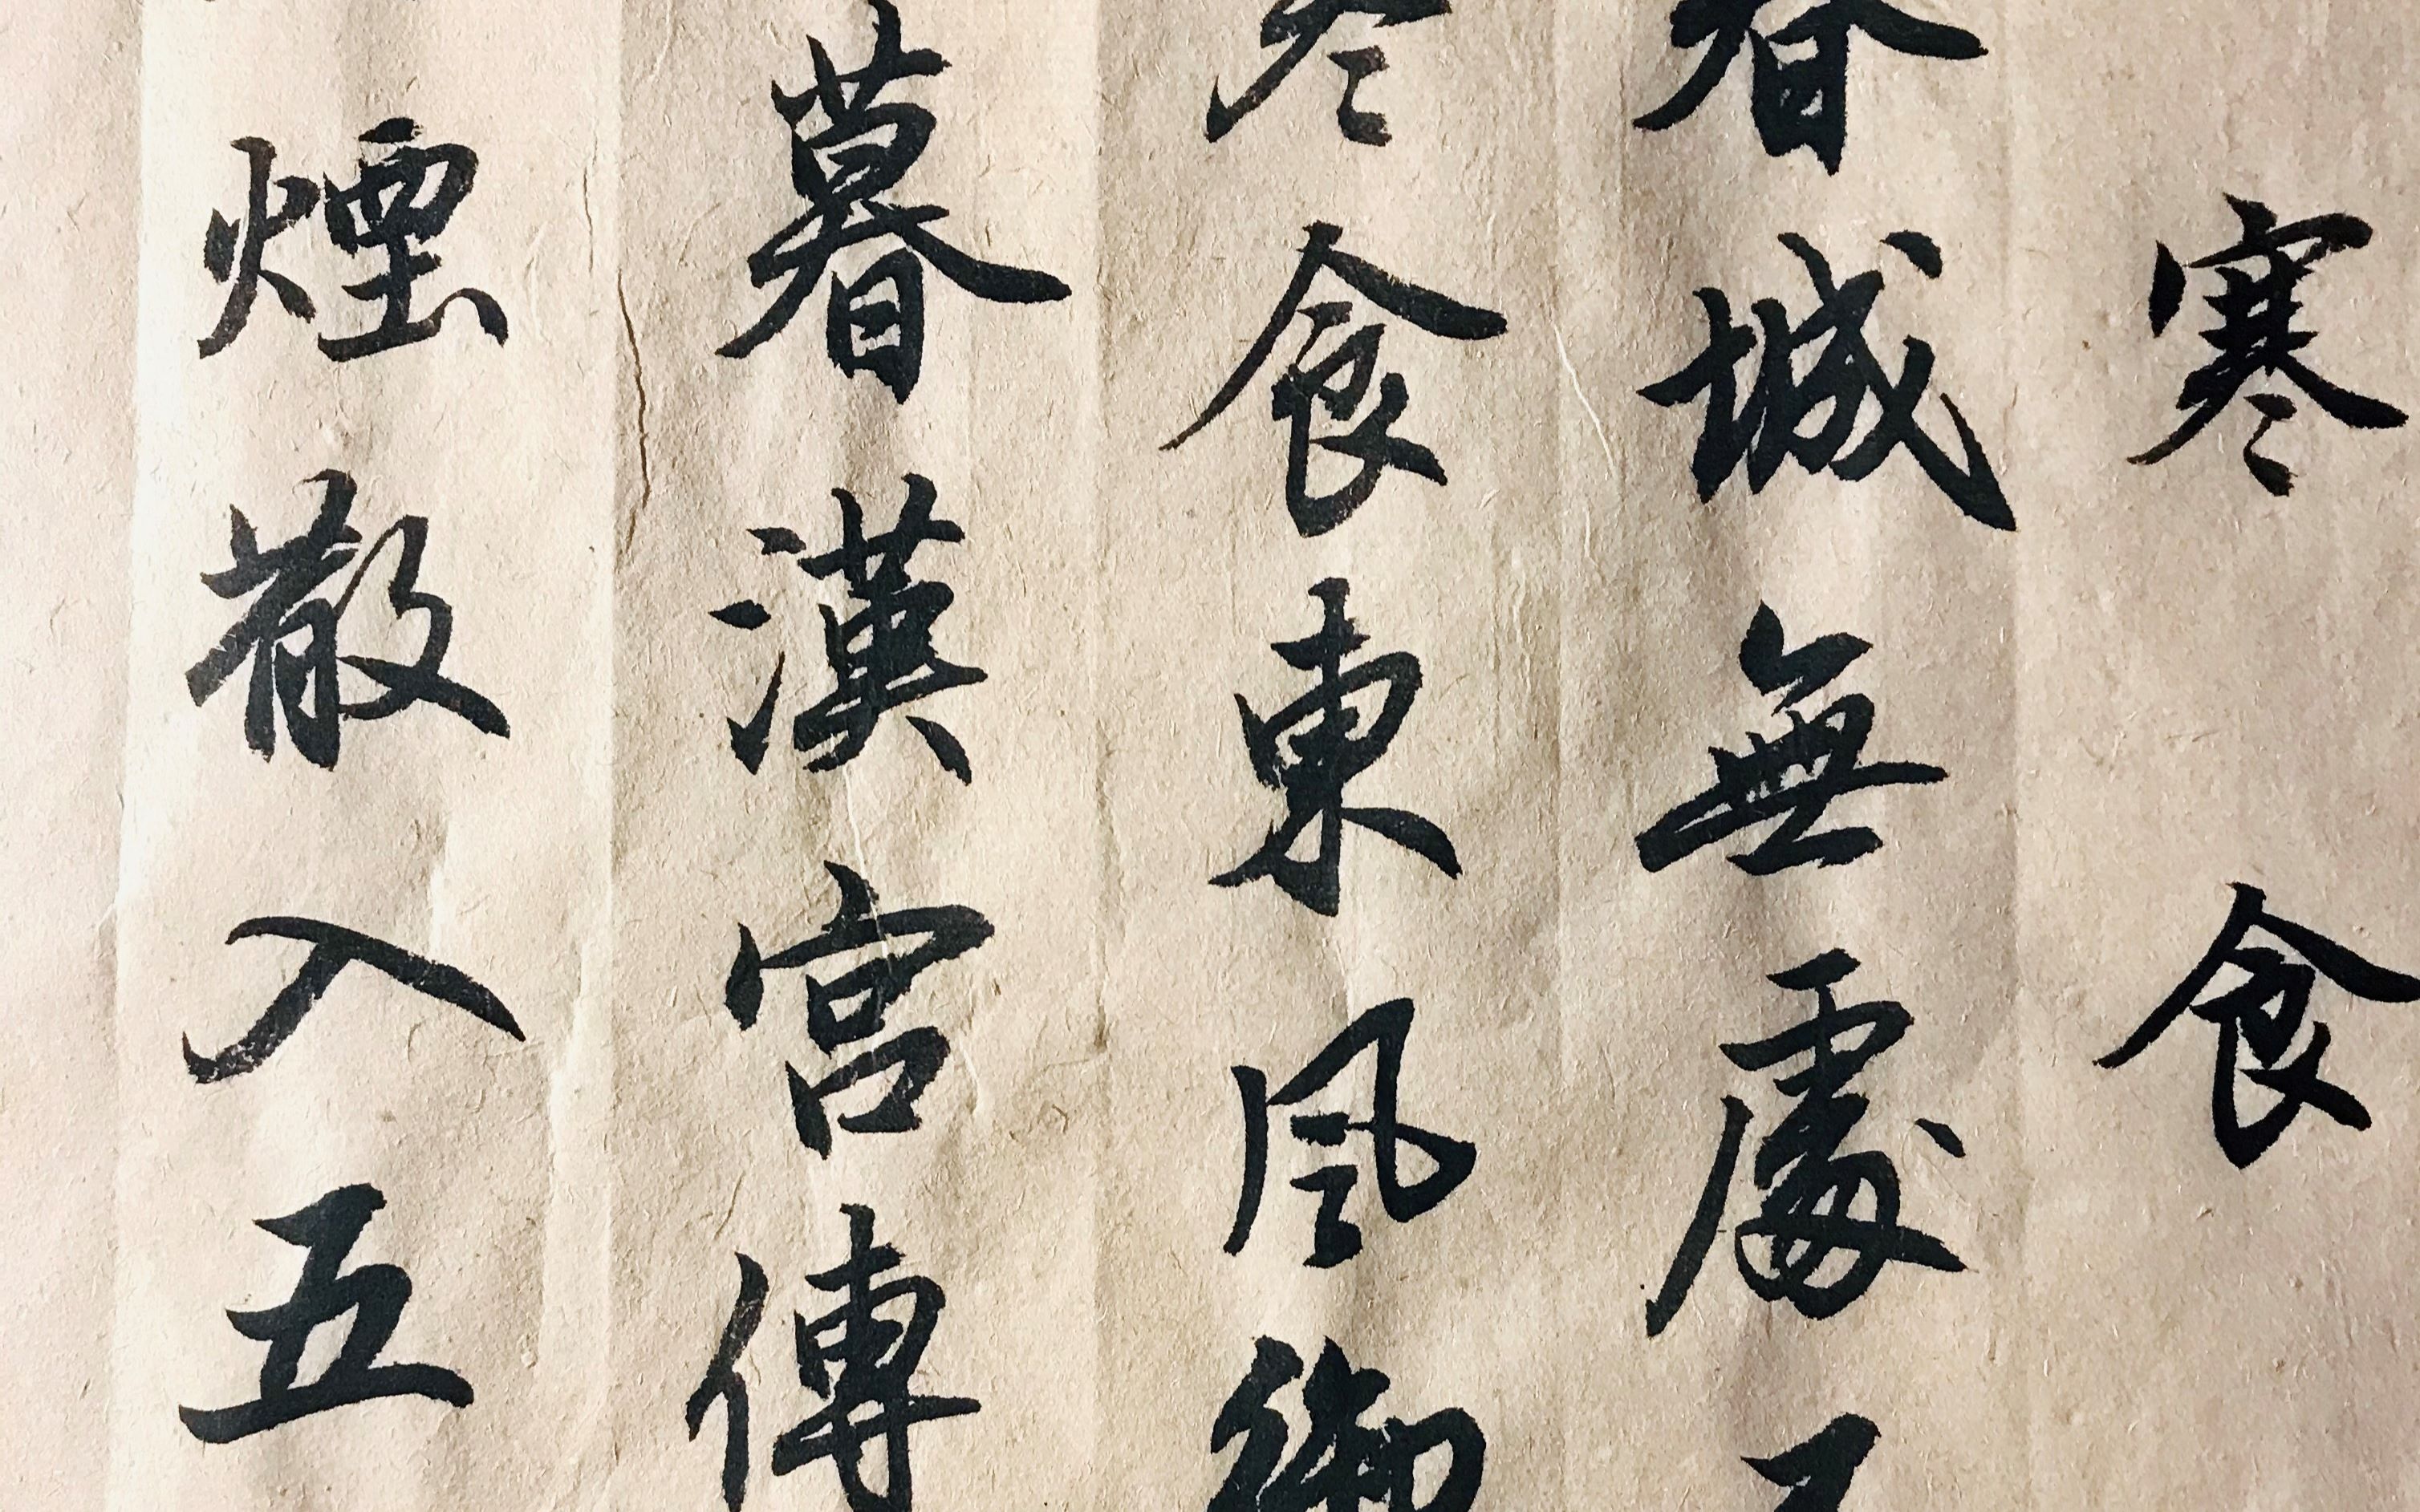 寒食
春城無處不
寒食東風御
暮漢宮傳
煙散入五